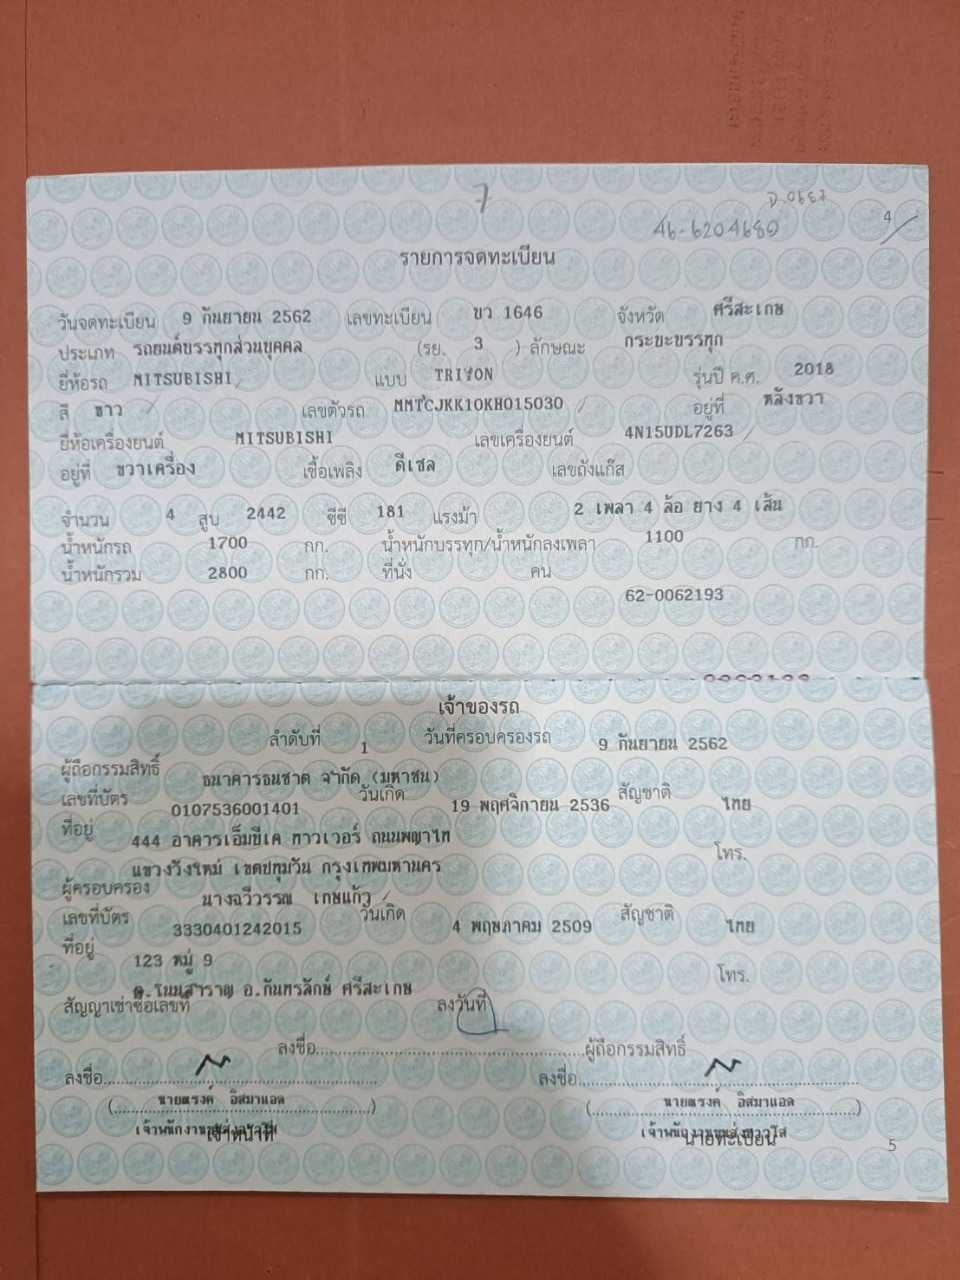 7
D.0687
46-6204689
4
รายการจดทะเบียน
วันจดทะเบียน 9 กันยายน 2562 เลขทะเบียน ขว 1646 จังหวัด ศรีสะเกษ
ประเภท รถยนต์บรรทุกส่วนบุคคล (รย. 3 ) ลักษณะ กระบะบรรทุก
ยี่ห้อรถ MITSUBISHI แบบ TRITON รุ่นปี ค.ศ. 2018
สี ขาว เลขตัวรถ MMTCJKK10KH015030 อยู่ที่ หลังขวา
ยี่ห้อเครื่องยนต์ MITSUBISHI เลขเครื่องยนต์ 4N15UDL7263
อยู่ที่ ขวาเครื่อง เชื้อเพลิง ดีเซล เลขถังแก๊ส
จำนวน 4 สูบ 2442 ซีซี 181 แรงม้า 2 เพลา 4 ล้อ ยาง 4 เส้น
น้ำหนักรถ 1700 กก. น้ำหนักบรรทุก/น้ำหนักลงเพลา 1100 กก.
น้ำหนักรวม 2800 กก. ที่นั่ง คน
62-0062193
เจ้าของรถ
ลำดับที่ 1 วันที่ครอบครองรถ 9 กันยายน 2562
ผู้ถือกรรมสิทธิ์ ธนาคารธนชาต จำกัด (มหาชน)
เลขที่บัตร 0107536001401 วันเกิด 19 พฤศจิกายน 2536 สัญชาติ ไทย
ที่อยู่ 444 อาคารเอ็มบีเค ทาวเวอร์ ถนนพญาไท
แขวงวังใหม่ เขตปทุมวัน กรุงเทพมหานคร โทร.
ผู้ครอบครอง นางฉวีวรรณ เกษแก้ว
เลขที่บัตร 3330401242015 วันเกิด 4 พฤษภาคม 2509 สัญชาติ ไทย
ที่อยู่ 123 หมู่ 9
ต.โนนสำราญ อ.กันทรลักษ์ ศรีสะเกษ โทร.
สัญญาเช่าซื้อเลขที่ ลงวันที่
ลงชื่อ............ผู้ถือกรรมสิทธิ์
ลงชื่อ............ ลงชื่อ............
(นายณรงค์ อิสมาแอล) (นายณรงค์ อิสมาแอล)
เจ้าหน้าที่ นายทะเบียน
5